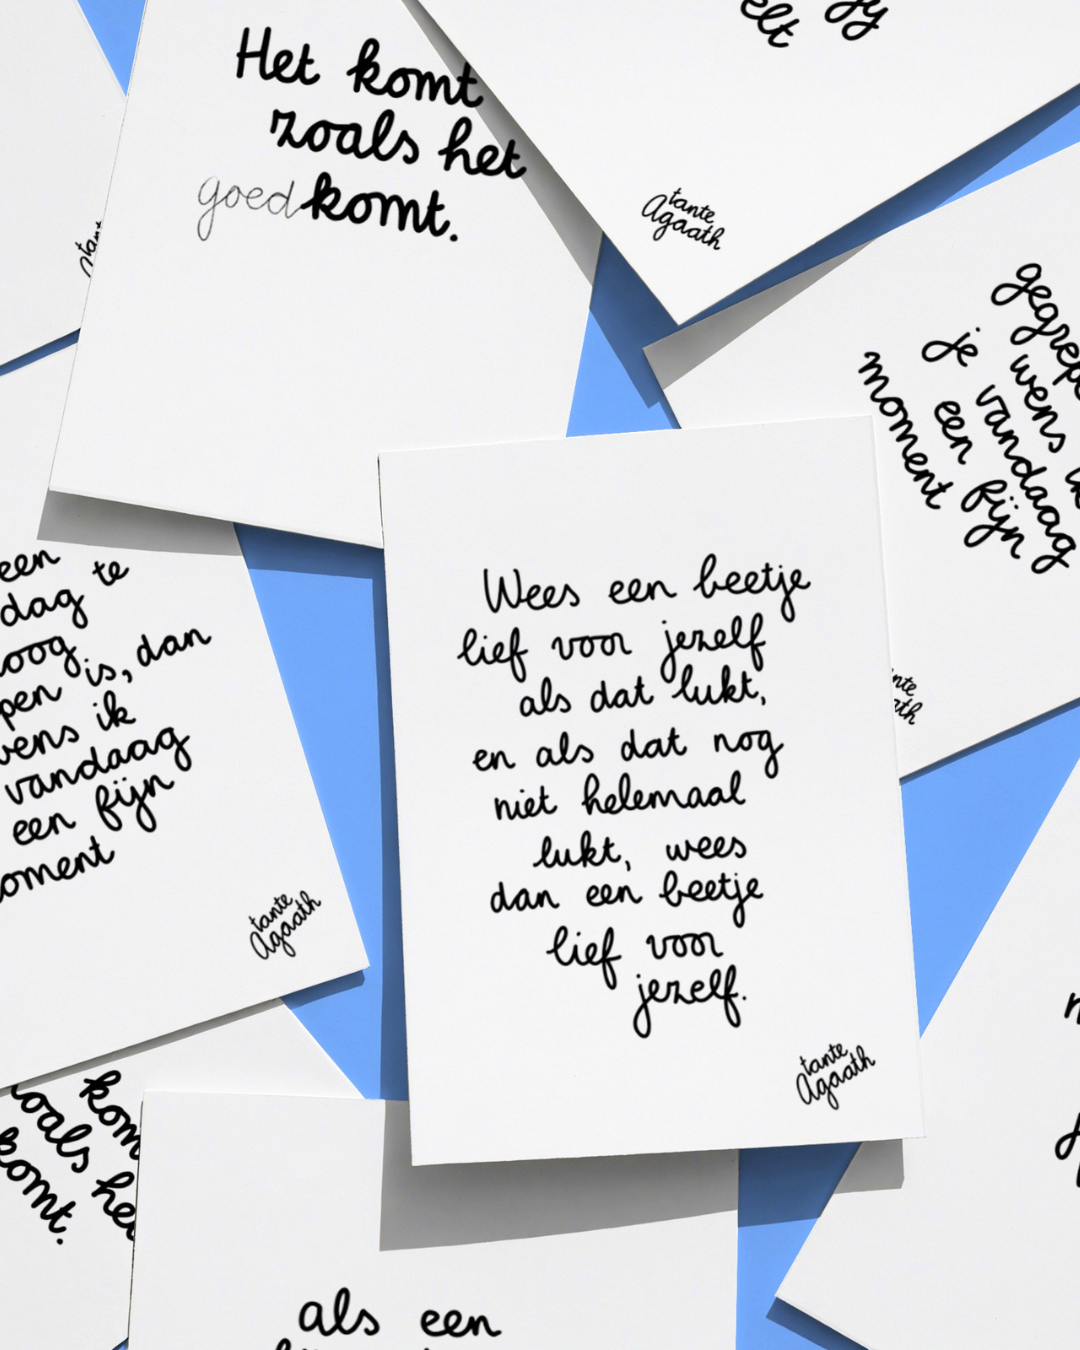 Het komt
zoals het
goedkomt.
tante
Agaath
gegrepen
je wens ik
vandaag
een fijn
moment
een
dag te
is, dan
ik
vandaag
een fijn
tante
Agaath
Wees een beetje
lief voor jezelf
als dat lukt,
en als dat nog
niet helemaal
lukt, wees
dan een beetje
lief voor
jezelf.
tante
Agaath
zoals
komt.
als een